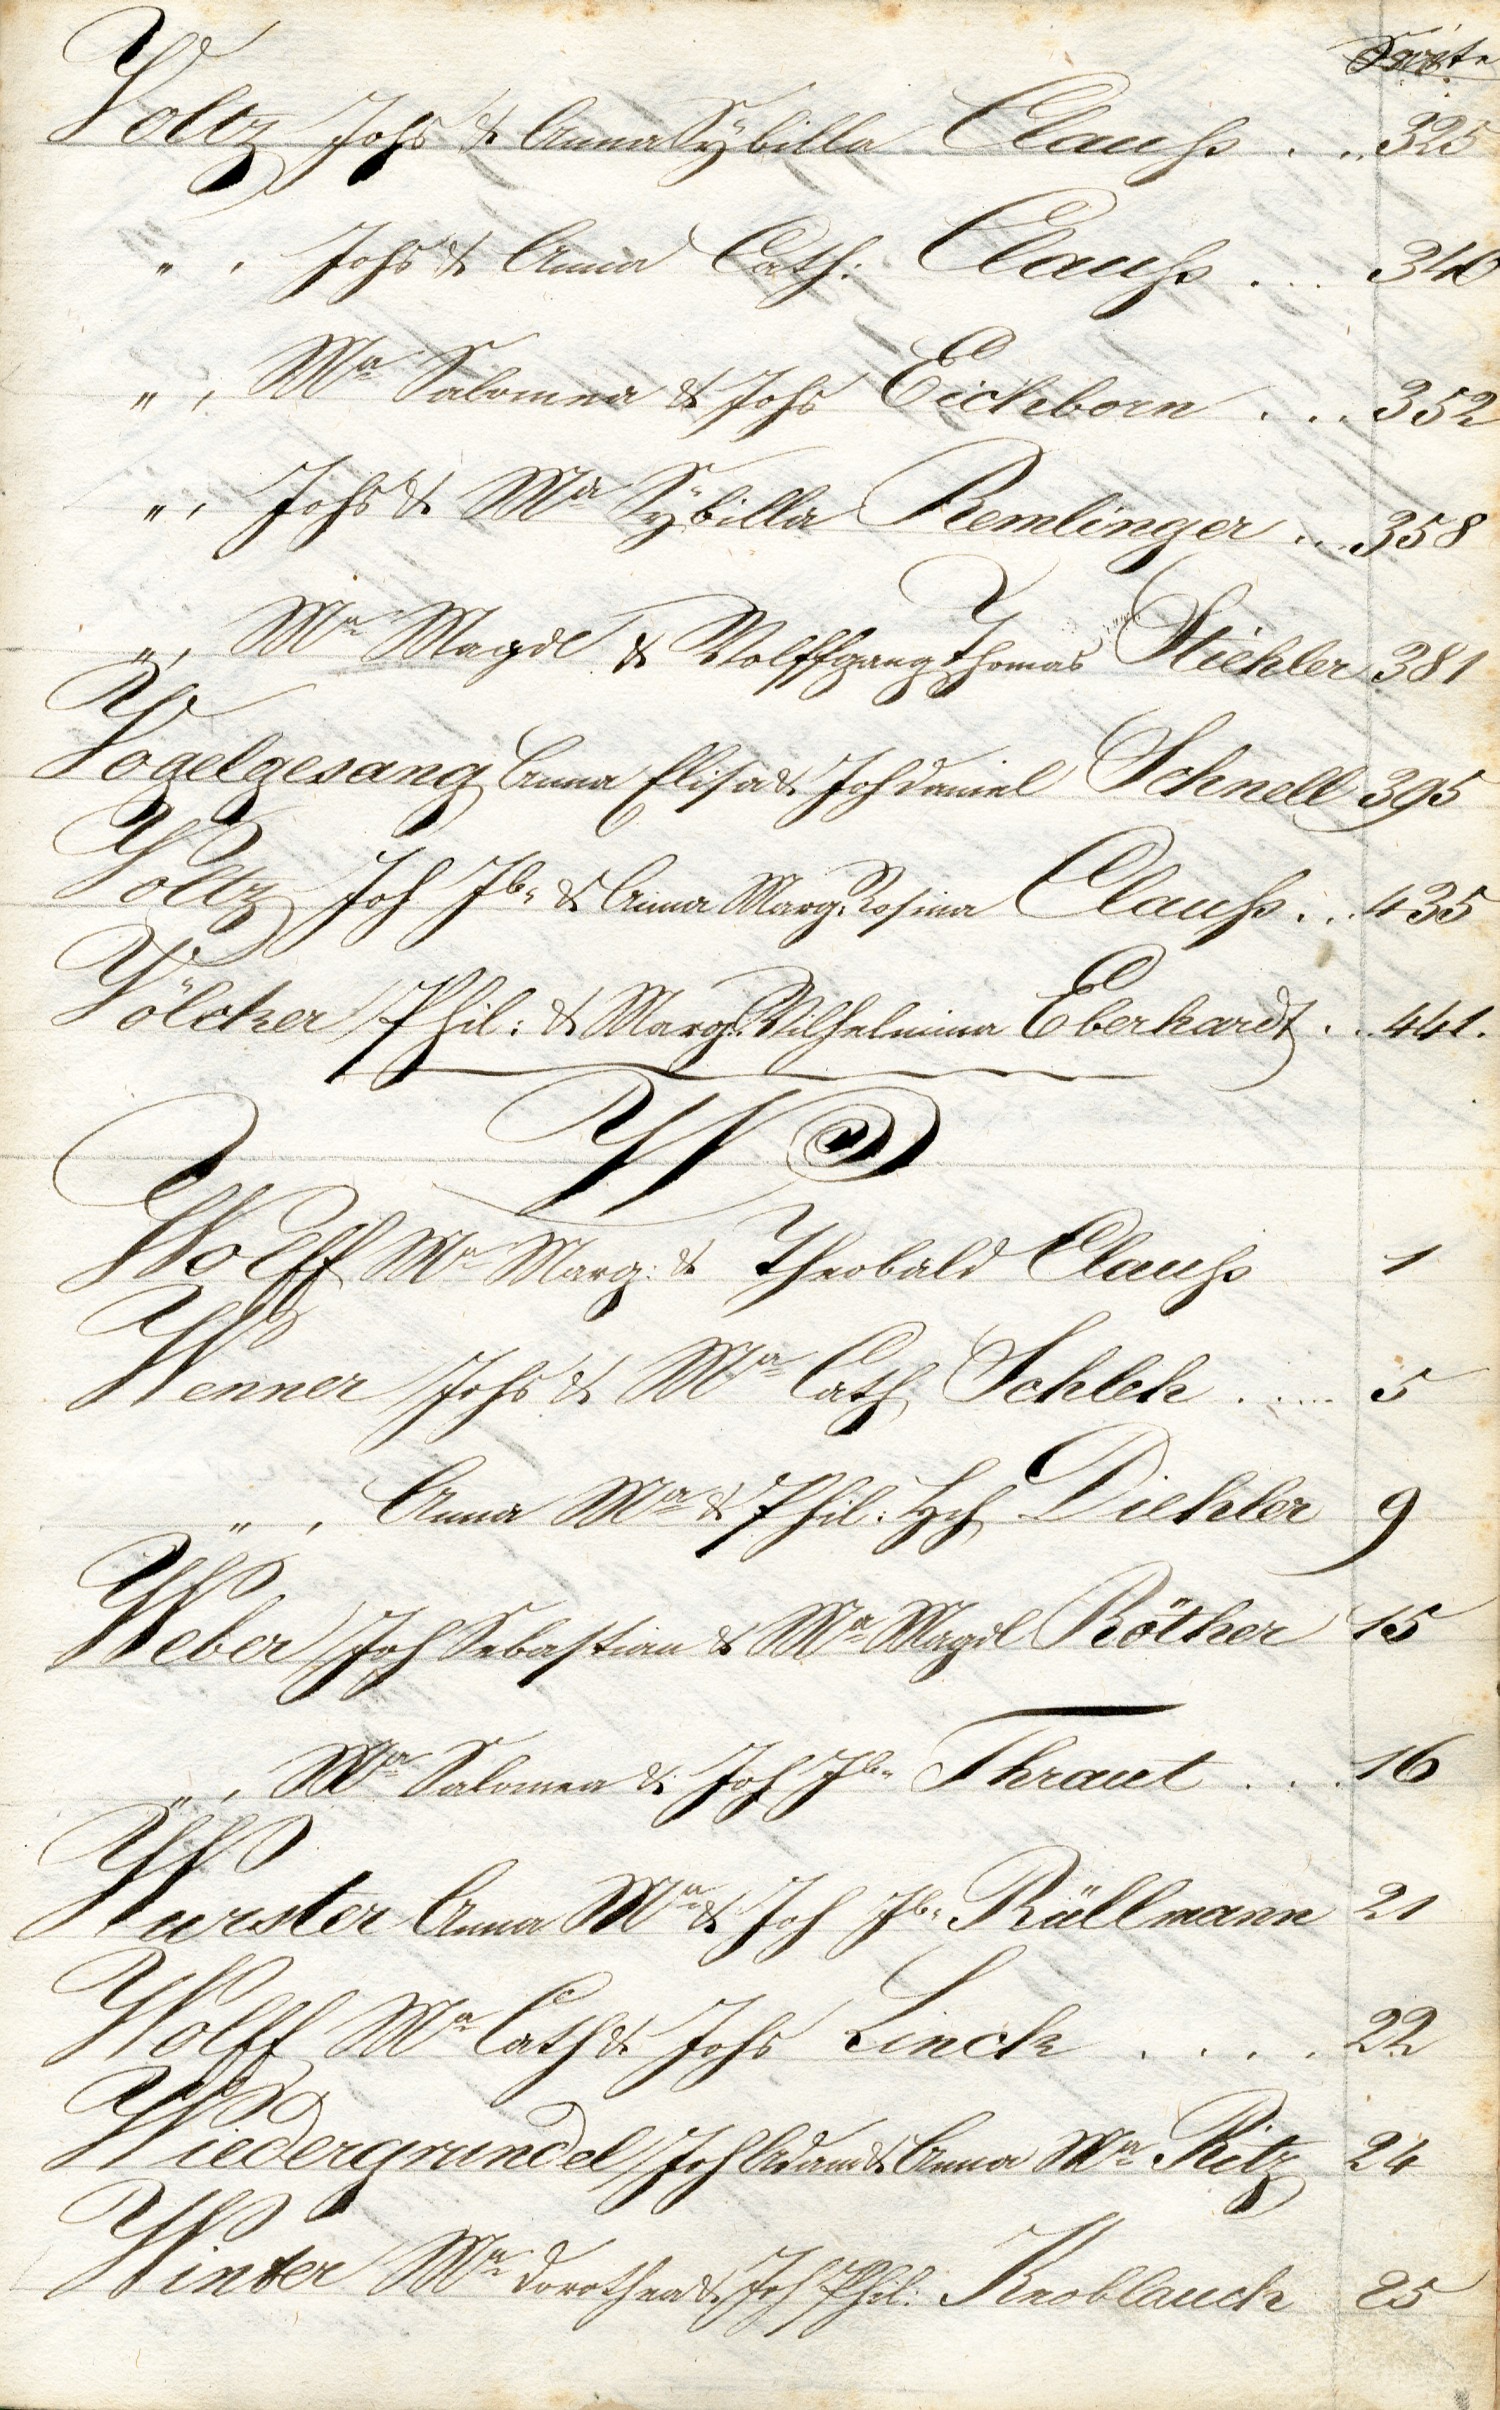 Seite
Voltz Johs & Anna Sÿbilla Clauß . .. 325
" , Johs & Anna Cath: Clauß . ... 340
" , Ma Salomea & Johs Eichborn . . .. 352
" , Johs & Ma Sÿbilla Remlinger . ... 358
" , Ma Magdl & Wolffgang Thomas Stiehler 381
Vogelgesang Anna Elisa & Joh daniel Schnell 395
Voltz Joh Jb. & Anna Marg. Rosina Clauß . .. 435
Völcker Phil: & Marg: Wilhelmina Eberhardt . .. 441.
W
Wolff Ma Marg: & Theobald Clauß 1
Wenner Johs & Ma Cath Schleh ..... 5
" , Anna Ma & Phil: Hch Diehler 9
Weber Joh Sebastian & Ma Magdl Röther 15
" , Ma Salomea & Joh Jb. Thraut . . . . 16
Wurster Anna Ma & Joh Jb. Rüllmann 21
Wolff Ma Cath & Johs Linck . . . . 22
Wiedergrundel Joh Adam & Anna Ma Ritz 24
Winter Ma dorothea & Joh Phil: Knoblauch 25